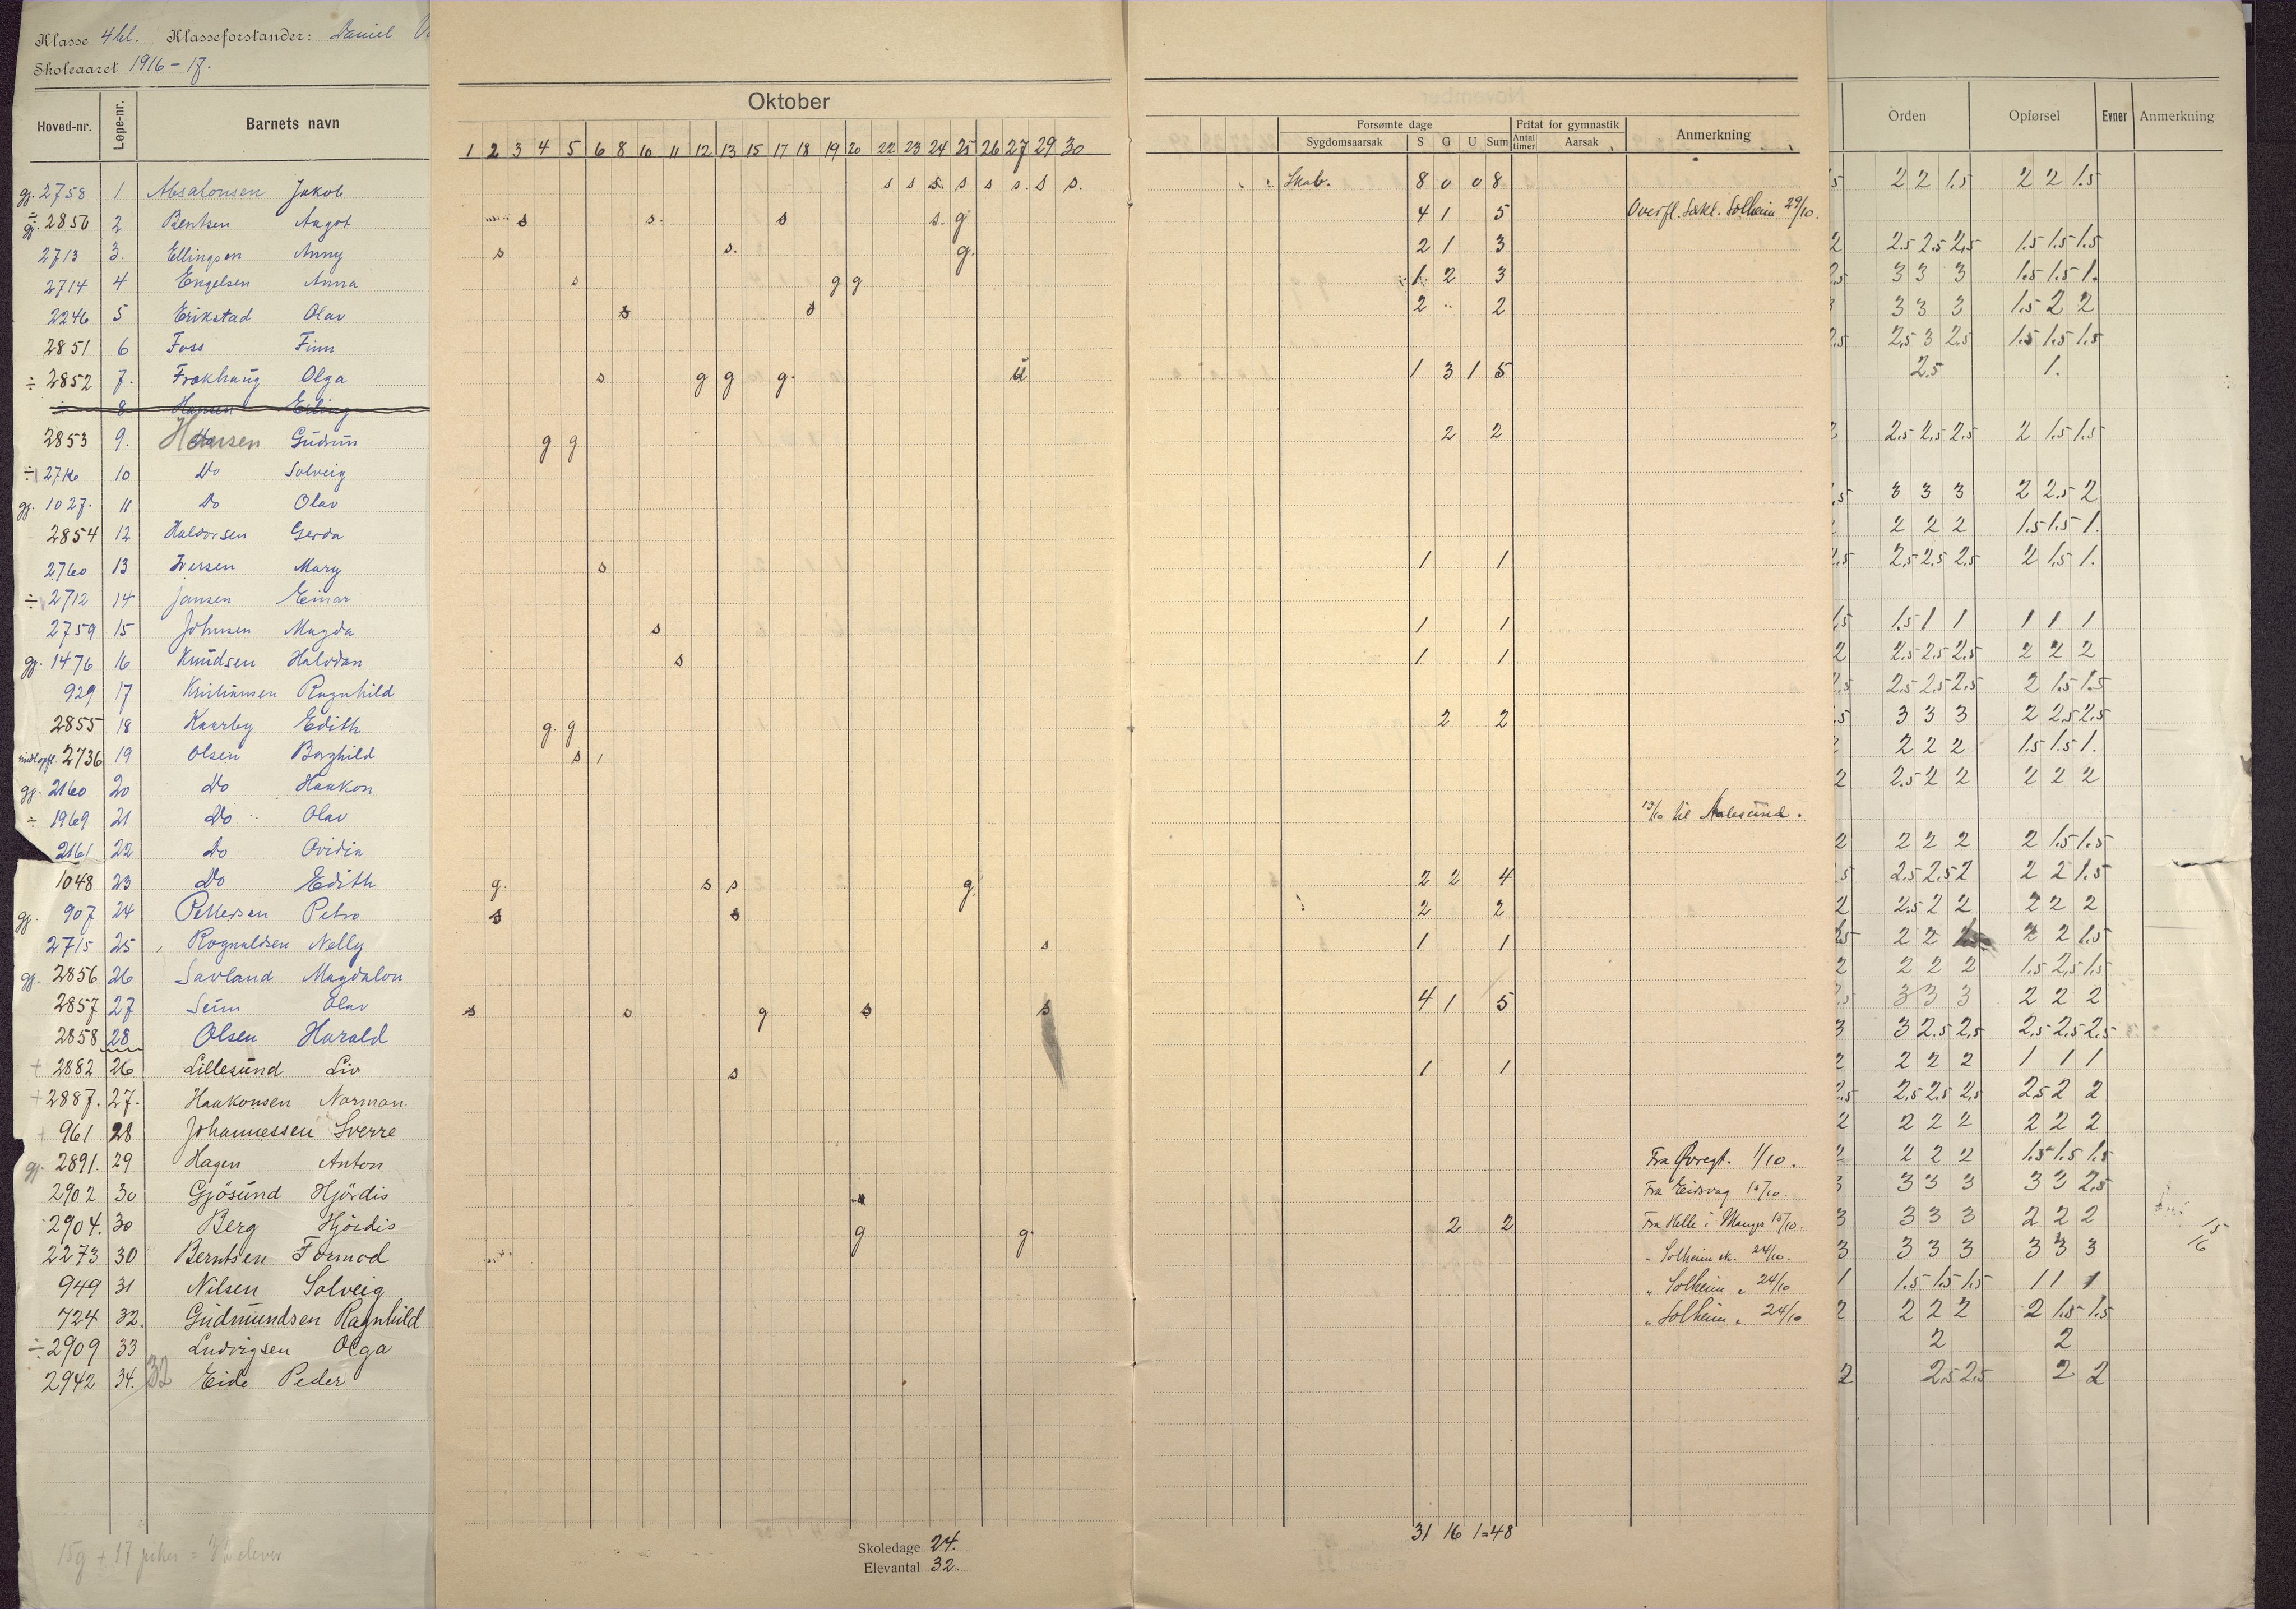 Klasse 4 kl. Klasseforstander: Daniel
Skoleaaret 1916-17.
Hoved-nr. Løpe-nr. Barnets navn
Oktober
1 2 3 4 5 6 8 10 11 12 13 15 17 18 19 20 22 23 24 25 26 27 29 30
Forsømte dage Fritat for gymnastik Anmerkning
Sygdomsaarsak S G U Sum Antal timer Aarsak
Orden Opførsel Evner Anmerkning
gj. 2758 1 Absalonsen Jakob s s s. s s s. s s. Skab. 8 0 0 8 2 2 1.5 2 2 1.5
÷ gj. 2850 2 Bentsen Aagot s s. s s. g 4 1 5 Overfl. Solheim 29/10.
2713 3. Ellingsen Anny s s. g. 2 1 3 2 2.5 2.5 2.5 1.5 1.5 1.5
2714 4 Engelsen Anna s g g 1 2 3 2.5 3 3 3 1.5 1.5 1.
2246 5 Erikstad Olav s s 2 .. 2 3 3 3 1.5 2 2
2851 6 Foss Finn 2.5 2.5 3 2.5 1.5 1.5 1.5
÷ 2852 7. Frækhaug Olga s g g g. u 1 3 1 5 2.5 1.
8 Hansen Erling
2853 9. Hansen Gudrun g g 2 2 2.5 2.5 2.5 2 1.5 1.5
÷ 2716 10 Do Solveig
gj. 1027. 11 Do Olav 3 3 3 2 2.5 2
2854 12 Haldorsen Gerda 2 2 2 1.5 1.5 1.
2760 13 Iversen Mary s 1 1 2.5 2.5 2.5 2.5 2 1.5 1.
÷ 2712 14 Jansen Einar
2759 15 Johnsen Magda s 1 1 1.5 1.5 1 1 1 1 1
gj. 1476 16 Knudsen Halvdan s 1 1 2 2.5 2.5 2.5 2 2 2
929 17 Kristiansen Ragnhild 2.5 2.5 2.5 2.5 2 1.5 1.5
2855 18 Kaarby Edith g. g 2 2 3 3 3 2 2.5 2.5
2736 19 Olsen Borghild s 2 2 2 1.5 1.5 1.
gj. 2160 20 Do Haakon 2 2.5 2 2 2 2 2
÷ 1969 21 Do Olav 13/10 til Aalesund.
2161 22 Do Ovidia 2 2 2 2 2 1.5 1.5
1048 23 Do Edith g. s s g. 2 2 4 2.5 2.5 2 2 2 1.5
gj. 907 24 Pettersen Petra s s 2 2 2 2.5 2 2 2 2 2
2715 25 Rognaldsen Nelly s 1 1 2 2 2 2 1.5
gj. 2856 26 Savland Magdalon 2 2 2 2 1.5 2.5 1.5
2857 27 Seim Olav s s g s s 4 1 5 3 3 3 2 2 2
2858 28 Olsen Harald 3 3 2.5 2.5 2.5 2.5 2.5
+ 2882 26 Lillesund Liv s 1 1 2 2 2 2 1 1 1
+ 2887. 27. Haakonsen Norman. 2.5 2.5 2.5 2.5 2.5 2 2
+ 961 28 Johannessen Sverre 2 2 2 2 2 2 2
gj. 2891. 29 Hagen Anton Fra Øvregt. 1/10. 2 2 2 2 1.5 1.5 1.5
2902 30 Gjøsund Hjørdis Fra Eidsvag 15/10. 3 3 3 3 3 3 2.5
2904. 30 Berg Hjørdis g g. 2 2 Fra Helle i Manger 15/10. 3 3 3 3 2 2 2
2273 30 Berntsen Tormod „ Solheim sk. 24/10. 3 3 3 3 3 3 3
949 31 Nilsen Solveig „ Solheim „ 24/10 1 1.5 1.5 1.5 1 1 1
724 32. Gudmundsen Ragnhild „ Solheim „ 24/10 2 2 2 2 2 1.5 1.5
÷ 2909 33 Ludvigsen Olga 2 2
2942 34. 32 Eide Peder 2 2.5 2.5 2 2
31 16 1=48
15g + 17 piker = 32 elever
Skoledage 24.
Elevantal 32.